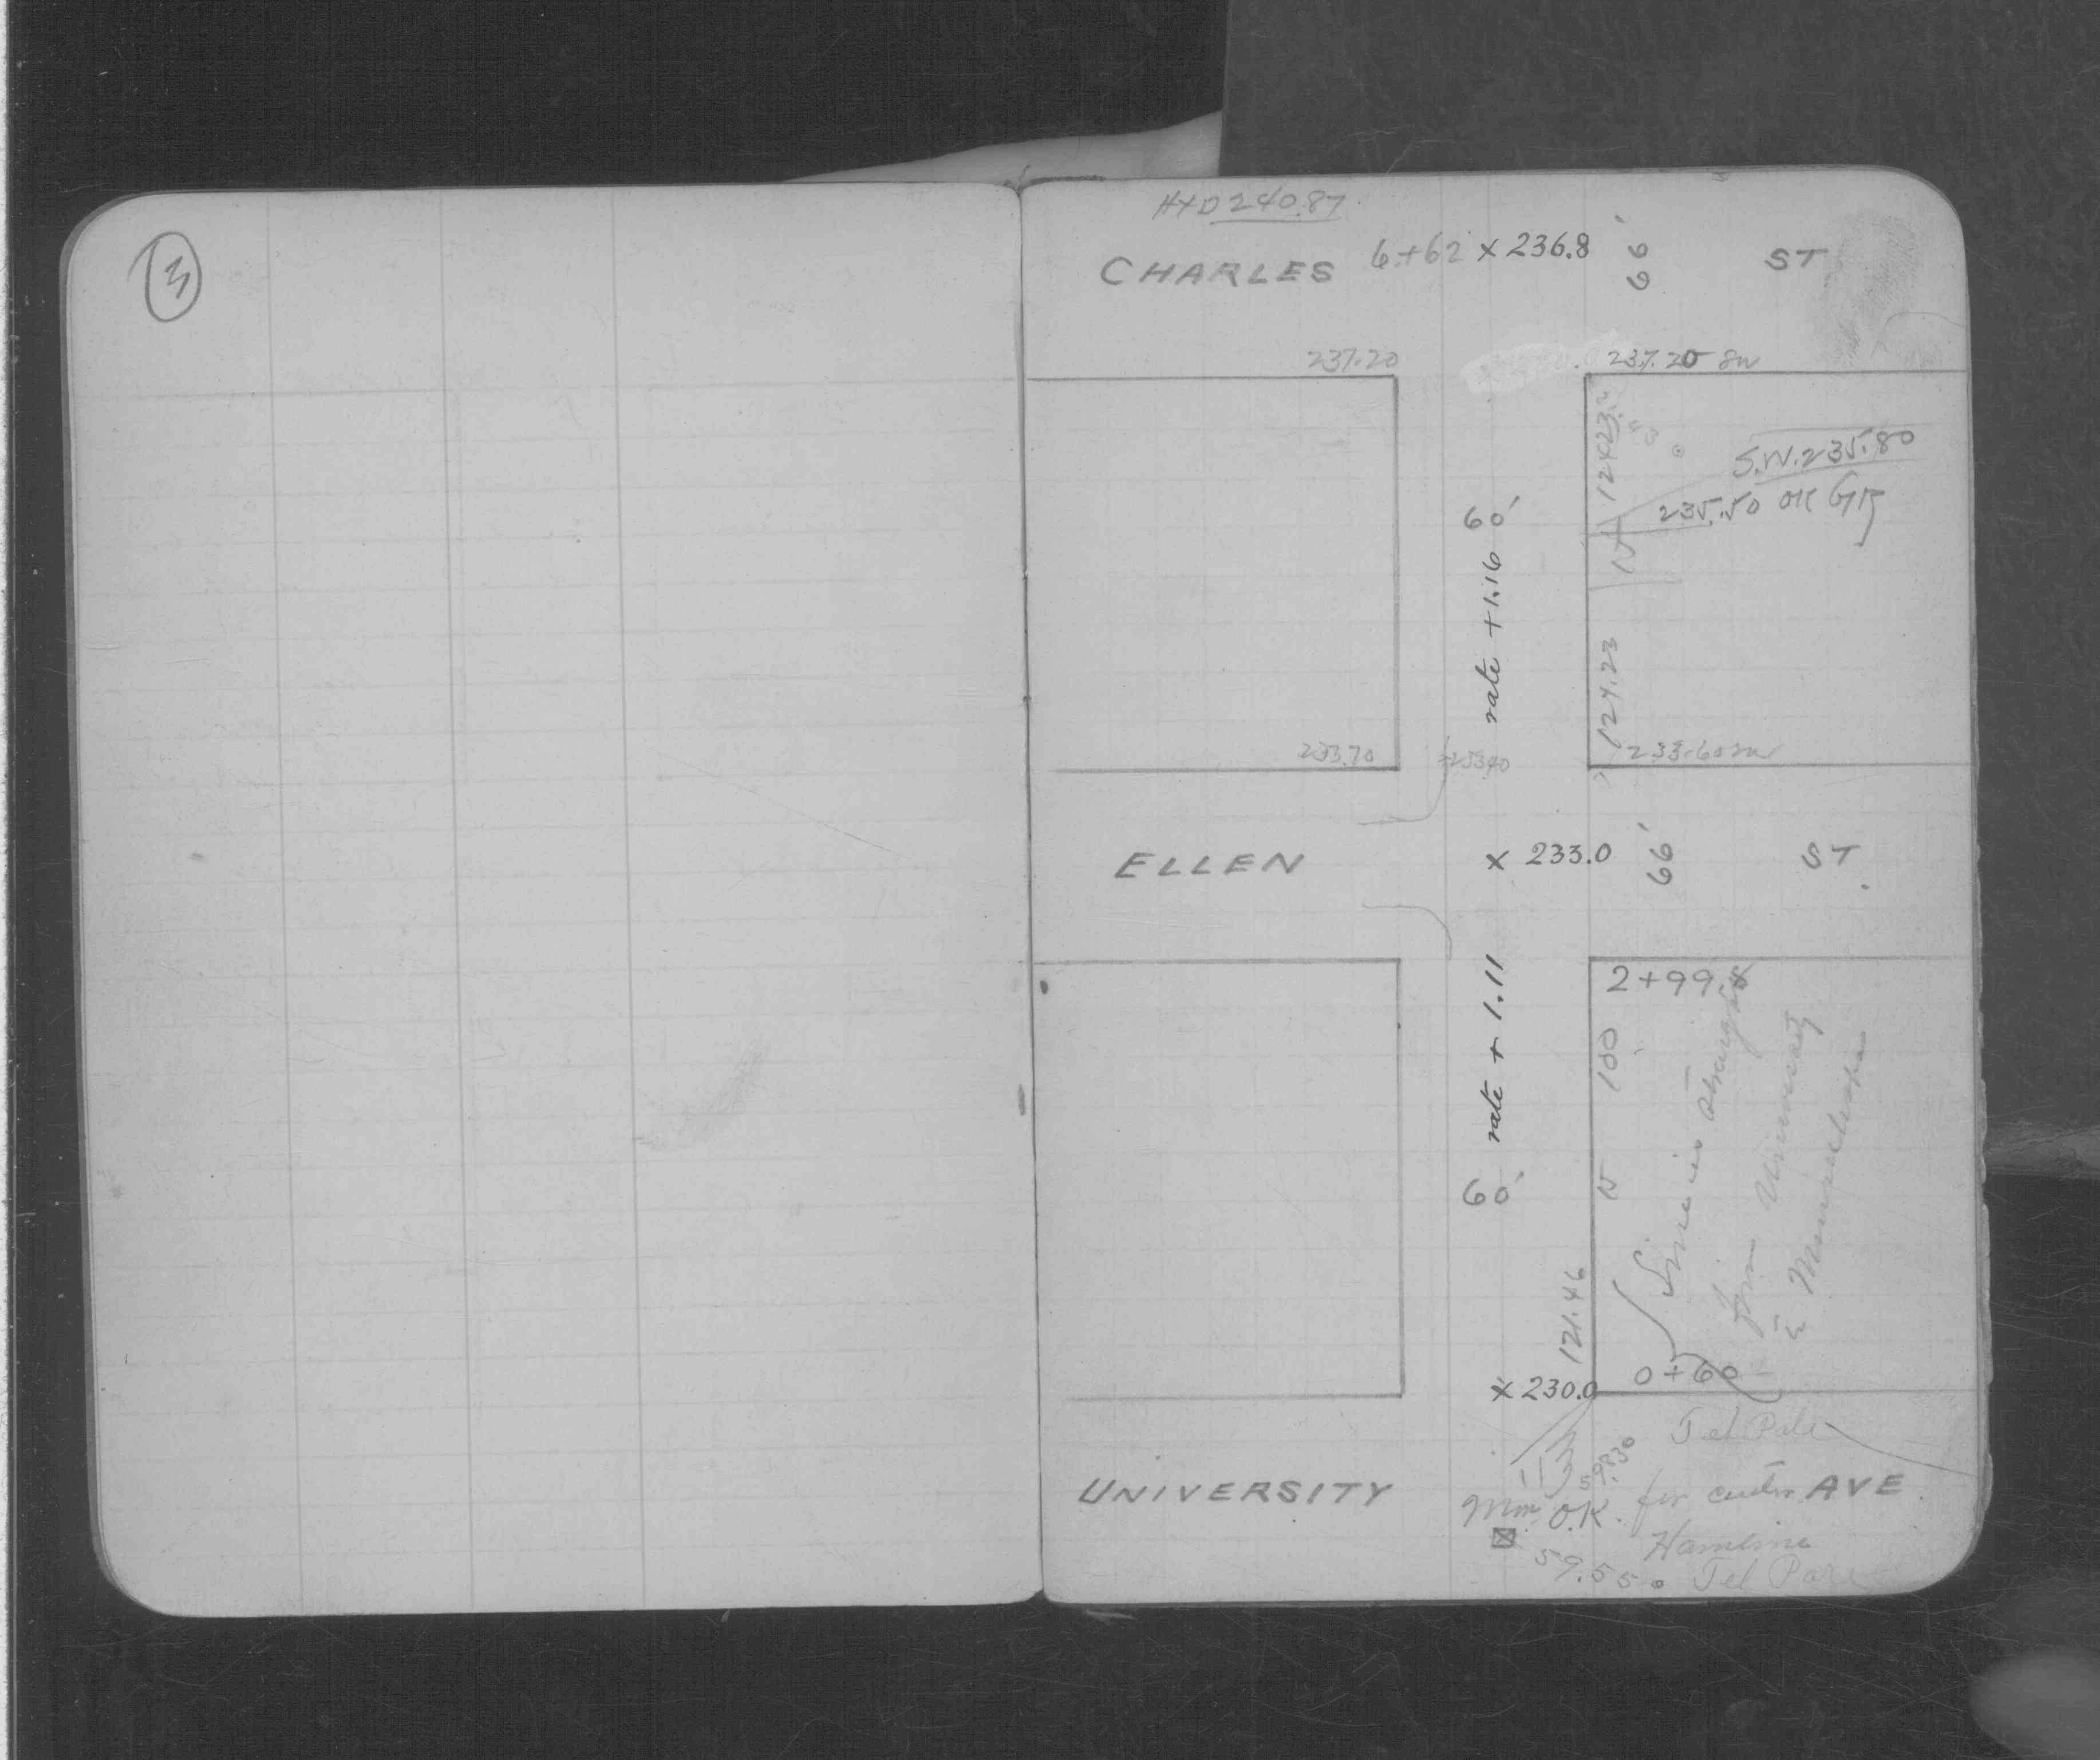 3
HYD 240.87
CHARLES 6+62 x 236.8 66' ST
237.20 237.20 SW
124.23
S.W. 235.80
235.50 OK GR
60'
rate +1.16
124.23
233.70 233.40 233.60 SW
ELLEN x 233.0 66' ST
2+99.8
100
rate + 1.11
60'
N
Line is straight
from University
to Minnehaha
121.46
0+60
x 230.0
Tel Pole
59.30
UNIVERSITY Mon O.K. for center AVE
Hamline
59.55 Tel Pole